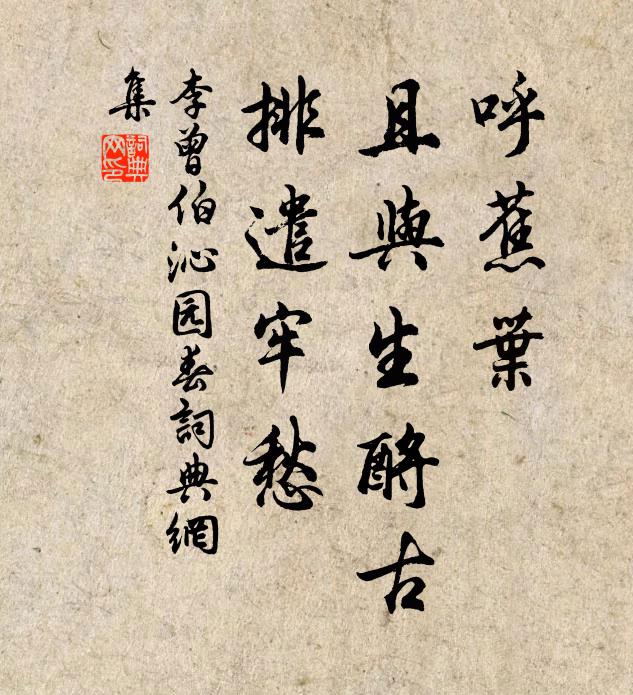 呼蕉葉
且與生酹古
排遣牢愁
李曾伯沁园春詞典網
集
詞典
网印